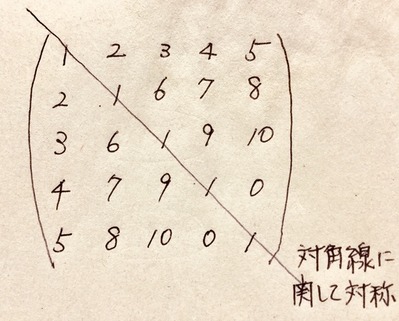 1 2 3 4 5
2 1 6 7 8
3 6 1 9 10
4 7 9 1 0
5 8 10 0 1
対角線に
関して対称